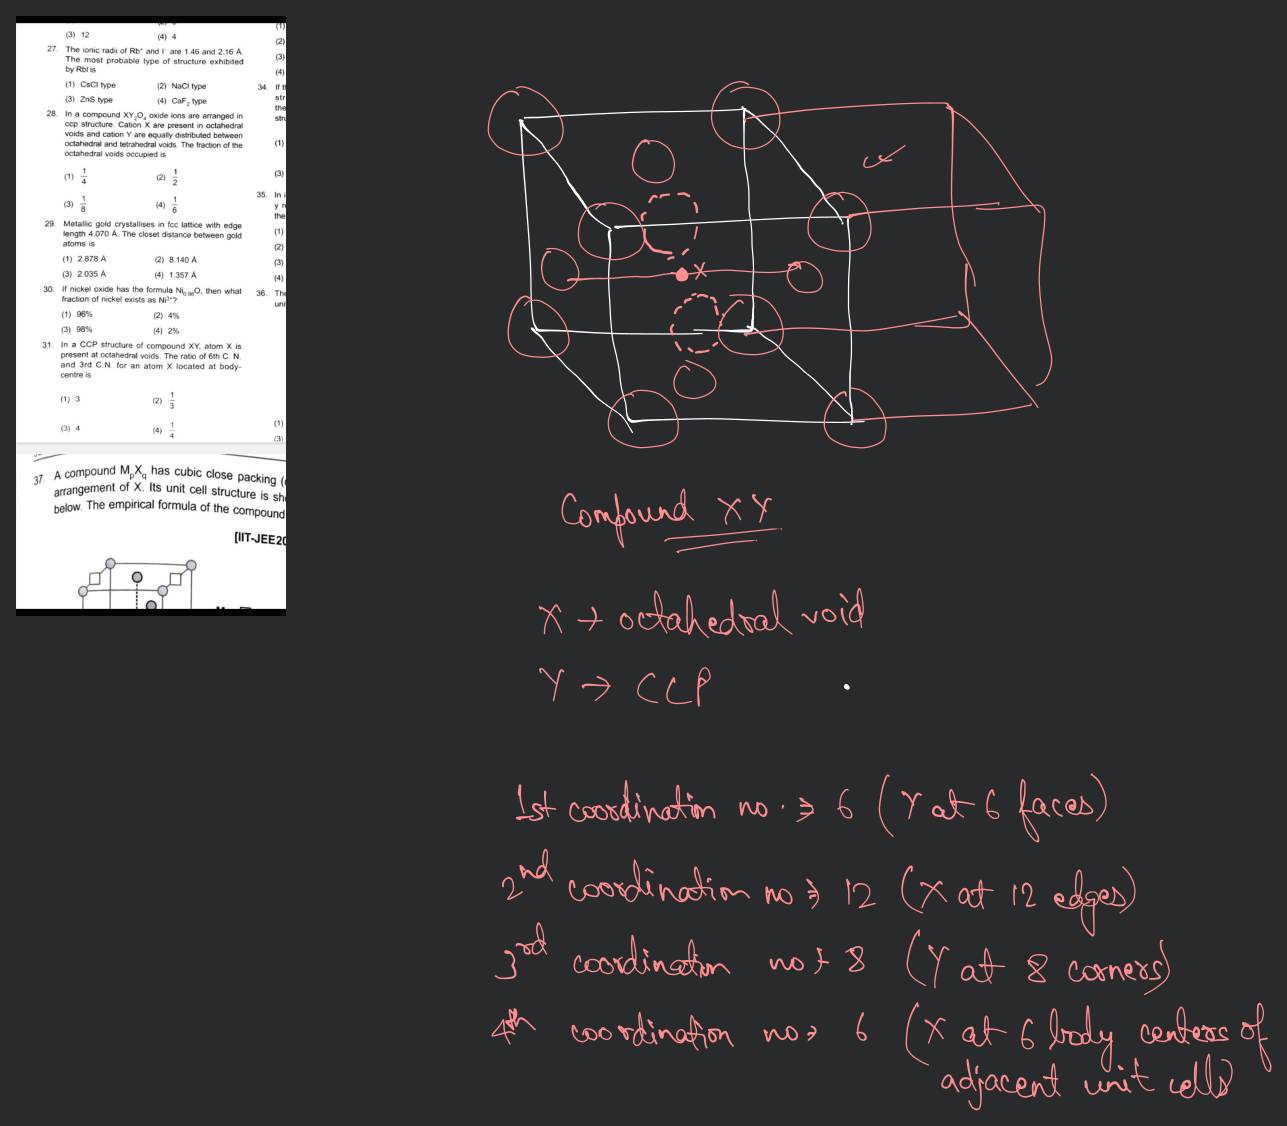 (3) 12
(4) 4
27. The ionic radii of Rb⁺ and I⁻ are 1.46 and 2.16 Å.
The most probable type of structure exhibited
by RbI is
(1) CsCl type
(2) NaCl type
(3) ZnS type
(4) CaF₂ type
28. In a compound XY₂O₄ oxide ions are arranged in
ccp structure. Cation X are present in octahedral
voids and cation Y are equally distributed between
octahedral and tetrahedral voids. The fraction of the
octahedral voids occupied is
(1) 1/4
(2) 1/2
(3) 1/8
(4) 1/6
29. Metallic gold crystallises in fcc lattice with edge
length 4.070 Å. The closet distance between gold
atoms is
(1) 2.878 Å
(2) 8.140 Å
(3) 2.035 Å
(4) 1.357 Å
30. If nickel oxide has the formula Ni₀.₉₈O, then what
fraction of nickel exists as Ni²⁺?
(1) 96%
(2) 4%
(3) 98%
(4) 2%
31. In a CCP structure of compound XY, atom X is
present at octahedral voids. The ratio of 6th C. N.
and 3rd C.N. for an atom X located at body-
centre is
(1) 3
(2) 1/3
(3) 4
(4) 1/4
(1)
(2)
(3)
(4)
34. If
str
the
(1)
(3)
35. In
the
(1)
(2)
(3)
(4)
36. The
uni
(1)
(3)
37. A compound MₚX_q has cubic close packing (
arrangement of X. Its unit cell structure is sh
below. The empirical formula of the compound
[IIT-JEE20
X
Compound XY
X → octahedral void
Y → CCP
1st coordination no. ⇒ 6 (Y at 6 faces)
2nd coordination no ⇒ 12 (X at 12 edges)
3rd coordination no → 8 (Y at 8 corners)
4th coordination no → 6 (X at 6 body centers of
adjacent unit cells)